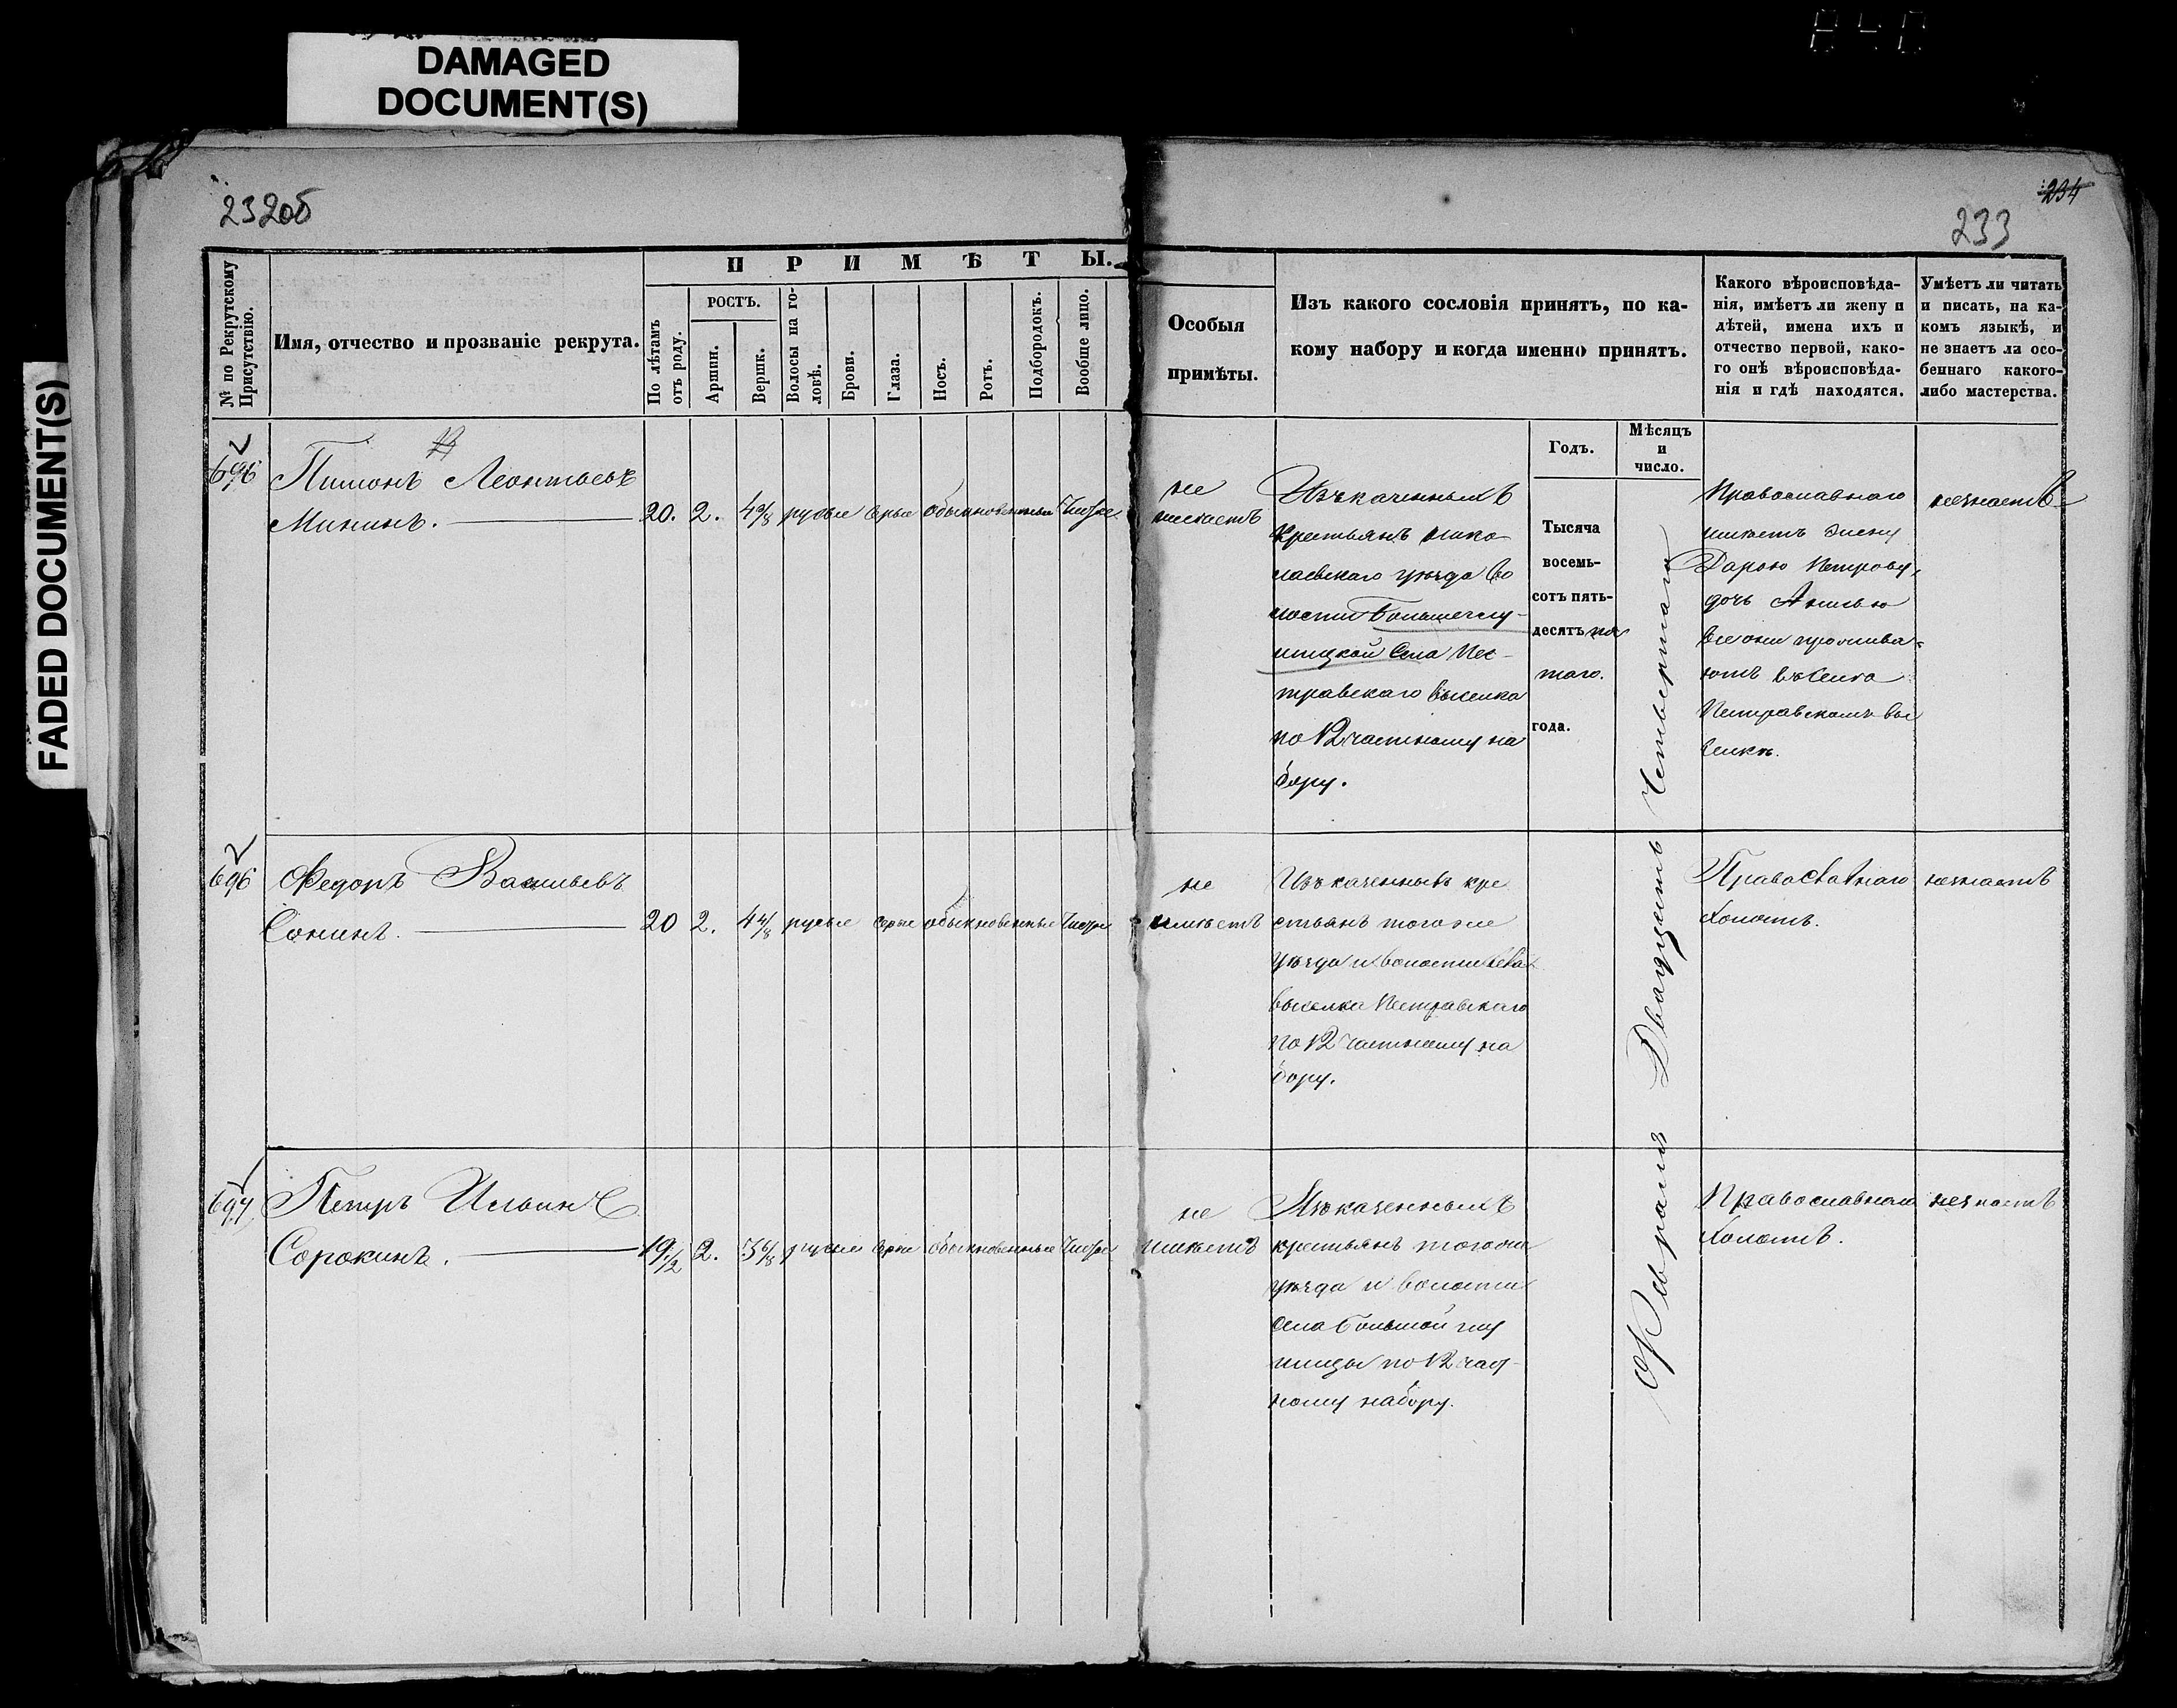 DAMAGED
DOCUMENT(S)
FADED DOCUMENT(S)
232об
234
233
№ по Рекрутскому Присутствію.
Имя, отчество и прозваніе рекрута.
ПРИМѢТЫ.
По лѣтамъ отъ роду.
РОСТЪ.
Аршин.
Вершк.
Волосы на головѣ.
Брови.
Глаза.
Носъ.
Ротъ.
Подбородокъ.
Вообще лицо.
Особыя
примѣты.
Изъ какого сословія принятъ, по ка-
кому набору и когда именно принятъ.
Какого вѣроисповѣда-
нія, имѣетъ ли жену и
дѣтей, имена ихъ и
отчество первой, како-
го онѣ вѣроисповѣда-
нія и гдѣ находятся.
Умѣетъ ли читать
и писать, на ка-
комъ языкѣ, и
не знаетъ ли осо-
беннаго какого-
либо мастерства.
Годъ.
Мѣсяцъ
и
число.
Пимонъ Леонтьевъ
Мининъ.
20. 2. русые серые обыкновенные Чистое
не
имеетъ
Изъ казенныхъ
крестьянъ Нико
лаевскаго уѣзда во
лости Большеглу
шицкой Села Пес
травскаго выселка
по 12 частному на
бору.
Тысяча
восемь-
сотъ пять-
десятъ пя
таго.
года.
Февраля Двадцать Четвертаго
Православнаго
имѣетъ жену
Дарью Петрову,
дочь Анисью
все они прожива-
ютъ въ Села
Пестравскомъ вы
селкѣ.
незнаетъ
696
Федоръ Васильевъ
Сонинъ.
20 2. 4 4/8 русые серые обыкновенные Чистое
не
имѣетъ
Изъ казенныхъ кре
стьянъ тогоже
уѣзда и волости Села
выселка Пестравскаго
по 12 частному на
бору.
Православнаго
Холостъ.
незнаетъ
697
Петръ Ильинъ
Сорокинъ.
19 1/2 2. 3 6/8 русые серые обыкновенные Чистое
не
имѣетъ
Изъ казенныхъ
крестьянъ тогоже
уѣзда и волости
Села Большой глу
шицы по 12 част
ному набору.
Православнаго
Холостъ.
незнаетъ